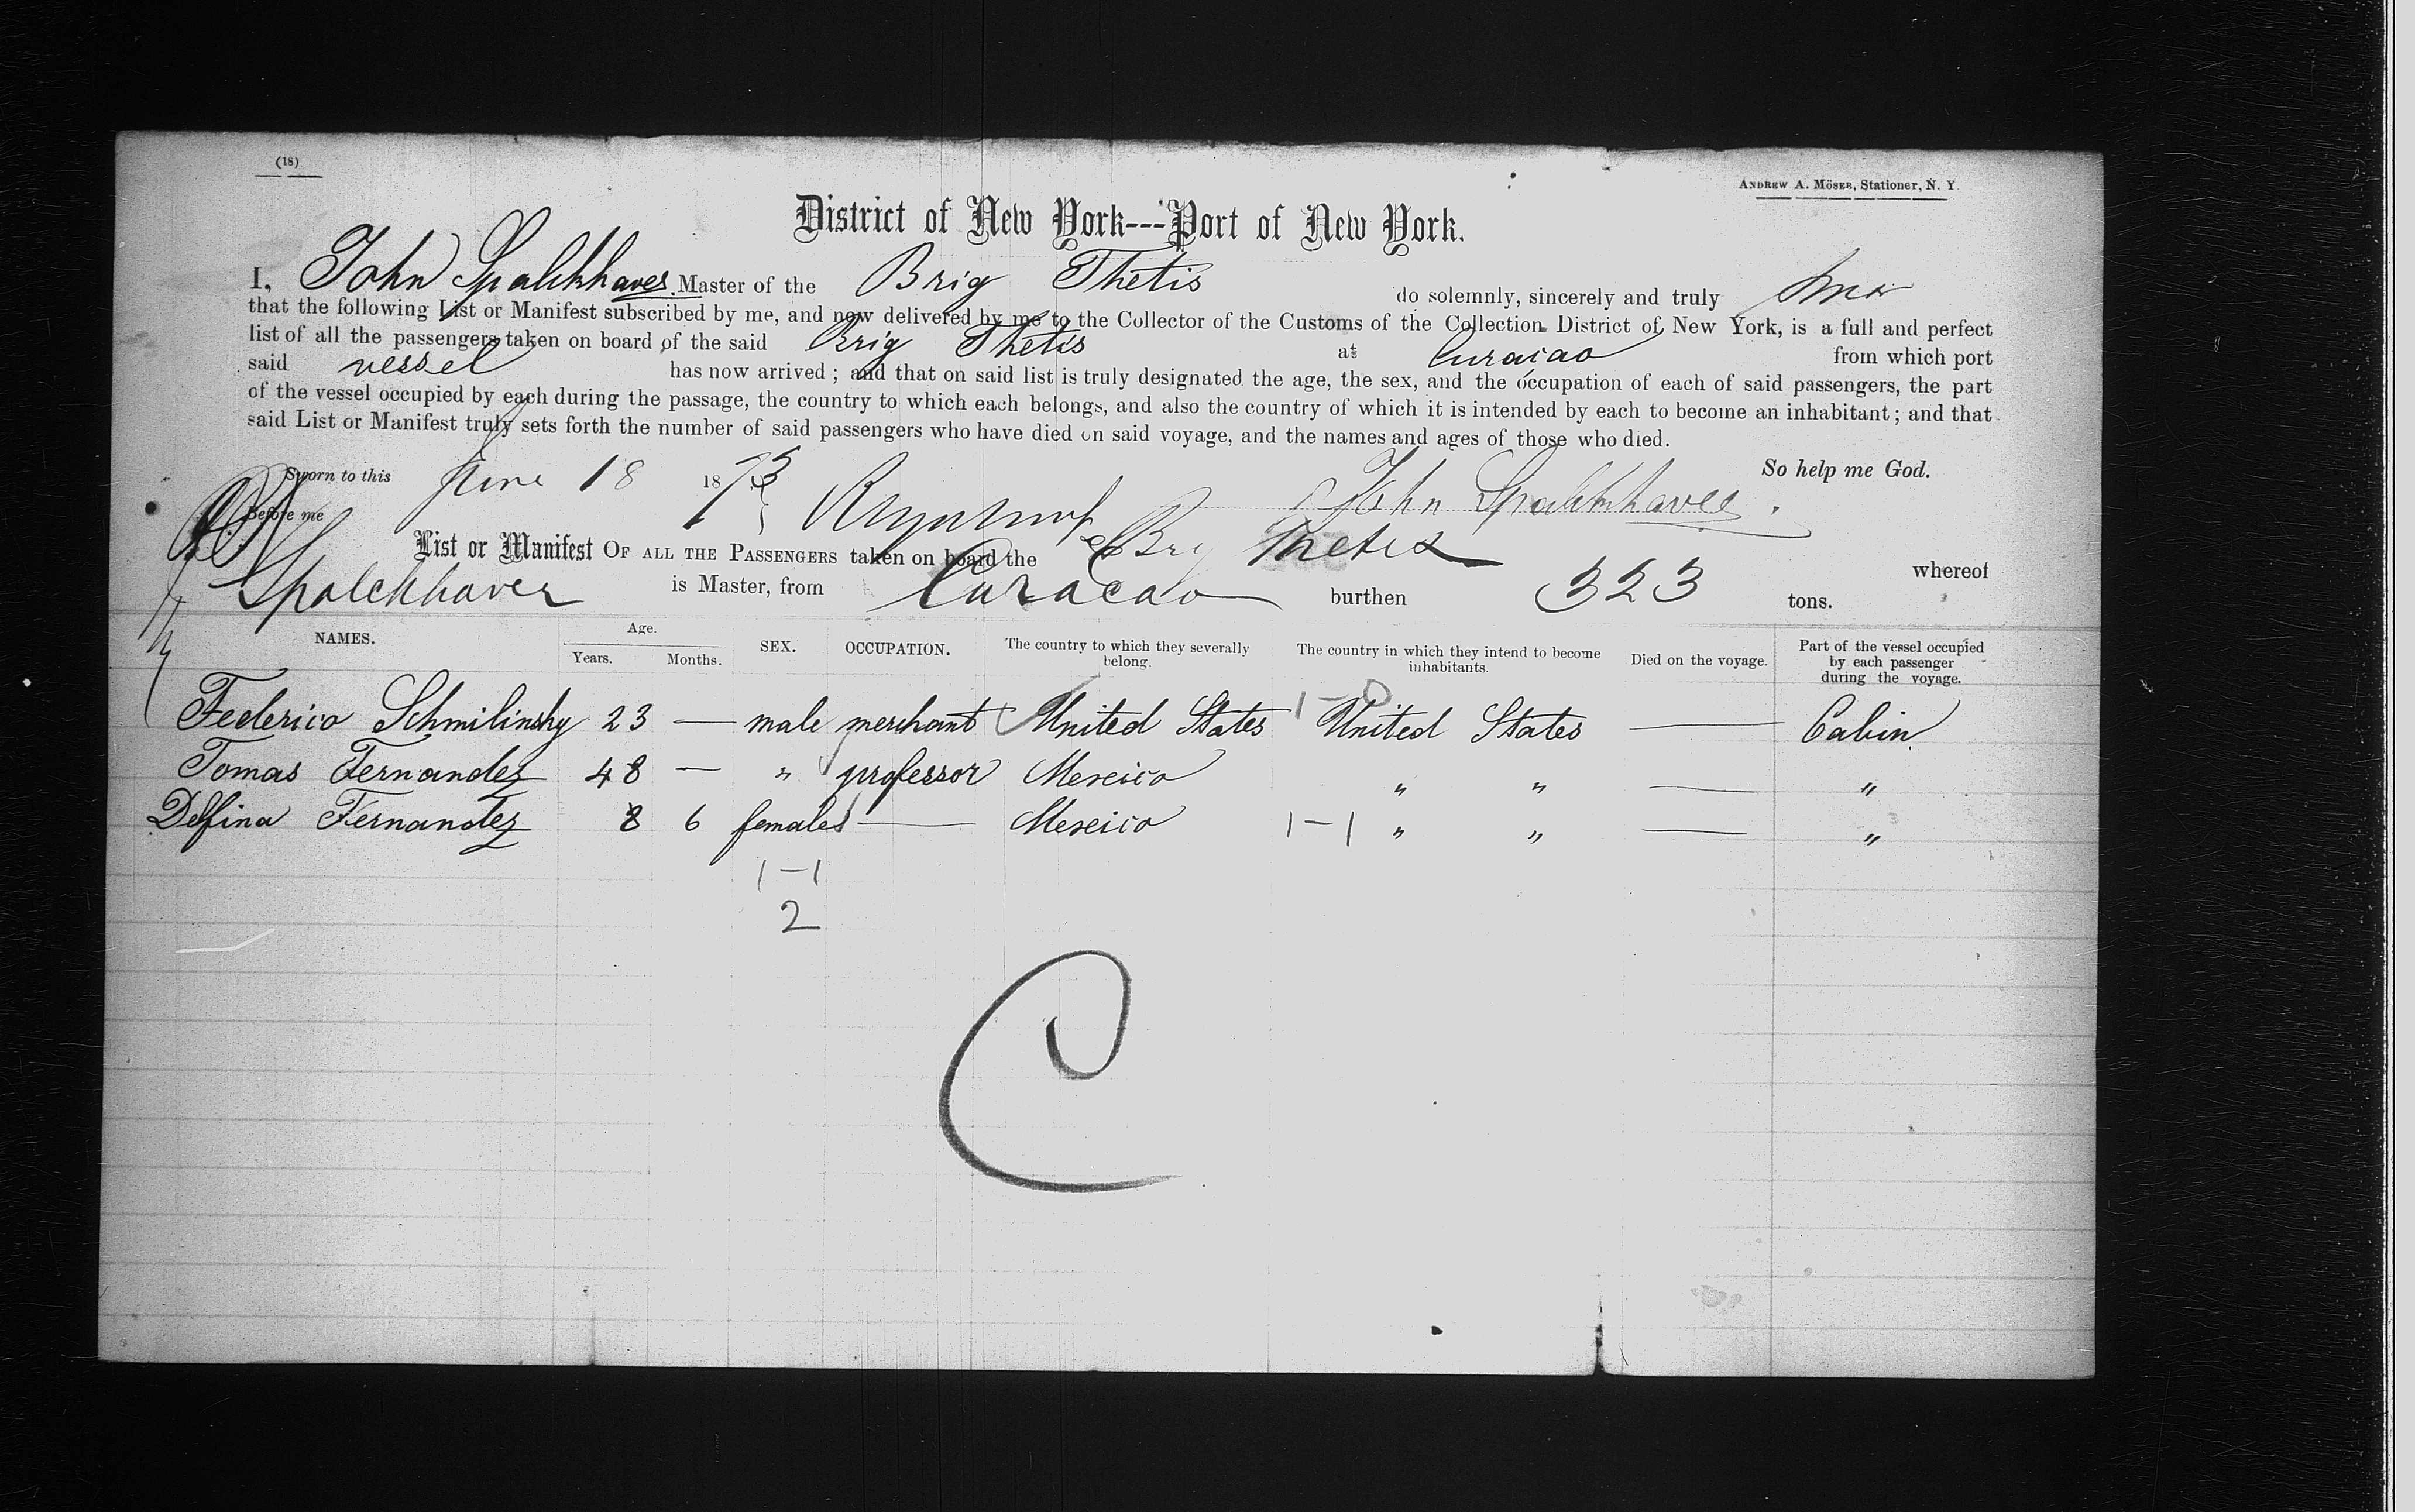 (18)
ANDREW A. MÖSER, Stationer, N. Y.
District of New York---Port of New York.
I, John Spalckhaver. Master of the Brig Thetis do solemnly, sincerely and truly
that the following List or Manifest subscribed by me, and now delivered by me to the Collector of the Customs of the Collection District of New York, is a full and perfect
list of all the passengers taken on board of the said Brig Thetis at Curaçao from which port
said vessel has now arrived ; and that on said list is truly designated the age, the sex, and the occupation of each of said passengers, the part
of the vessel occupied by each during the passage, the country to which each belongs, and also the country of which it is intended by each to become an inhabitant ; and that
said List or Manifest truly sets forth the number of said passengers who have died on said voyage, and the names and ages of those who died.
Sworn to this June 18 1873 So help me God.
Before me John Spalckhaver.
List or Manifest OF ALL THE PASSENGERS taken on board the Brig Thetis whereof
Spalckhaver is Master, from Curacao burthen 323 tons.
NAMES. Age. Years. Months. SEX. OCCUPATION. The country to which they severally belong. The country in which they intend to become inhabitants. Died on the voyage. Part of the vessel occupied by each passenger during the voyage.
1-0
Federico Schmilinsky 23 — male merchant United States United States — Cabin
Tomas Fernandez 48 — " professor Mexico " " — "
Delfina Fernandez 8 6 females — Mexico 1-1 " " — "
1-1
2
C